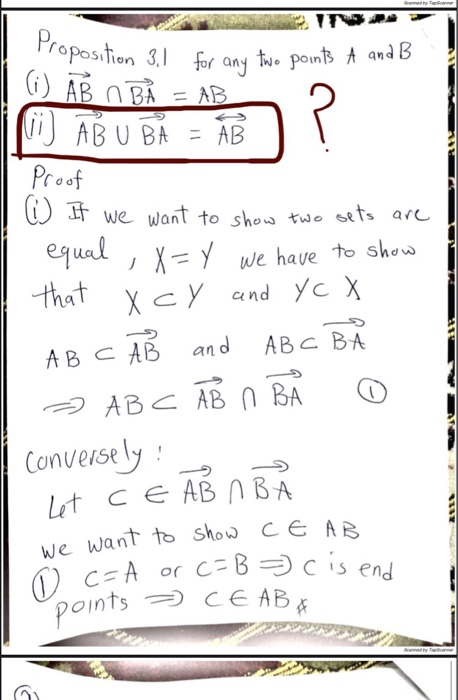 Scanned by TapScanner
Proposition 3.1 for any two points A and B
(i) $\overrightarrow{AB} \cap \overrightarrow{BA} = AB$
(ii) $\overrightarrow{AB} \cup \overrightarrow{BA} = \overleftrightarrow{AB}$ ?
Proof
(i) If we want to show two sets are
equal, X = Y we have to show
that X ⊂ Y and Y ⊂ X
$AB \subset \overrightarrow{AB}$ and $AB \subset \overrightarrow{BA}$
$\Rightarrow AB \subset \overrightarrow{AB} \cap \overrightarrow{BA}$ ①
Conversely:
Let $C \in \overrightarrow{AB} \cap \overrightarrow{BA}$
we want to show C ∈ AB
① C=A or C=B ⇒ C is end
points ⇒ C ∈ AB
Scanned by TapScanner